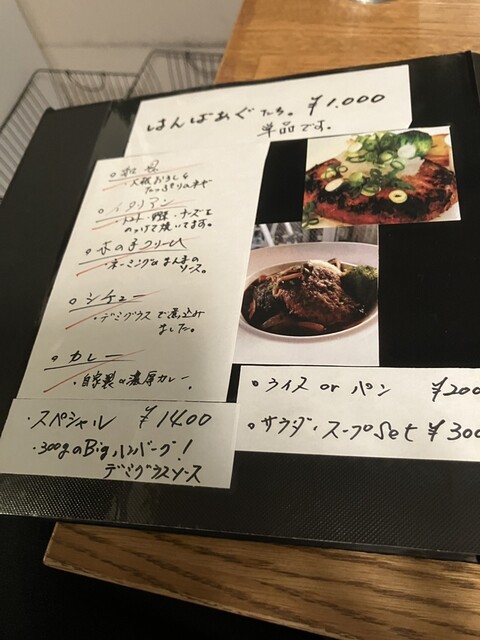 はんばあぐたち。¥1.000
単品です。
。和風
・大根おろしと
たっぷりのネギ
。イタリアン
・トマト・野菜・チーズを
のっけて焼いてます。
。きの子クリーム
ソース。
。シチュー
・デミグラスで煮込み
ました。
。カレー
・自家製の濃厚カレー。
・スペシャル ¥1400
・300gのBigハンバーグ!
デミグラスソース
。ライス or パン ¥200
。サラダ・スープSet ¥300